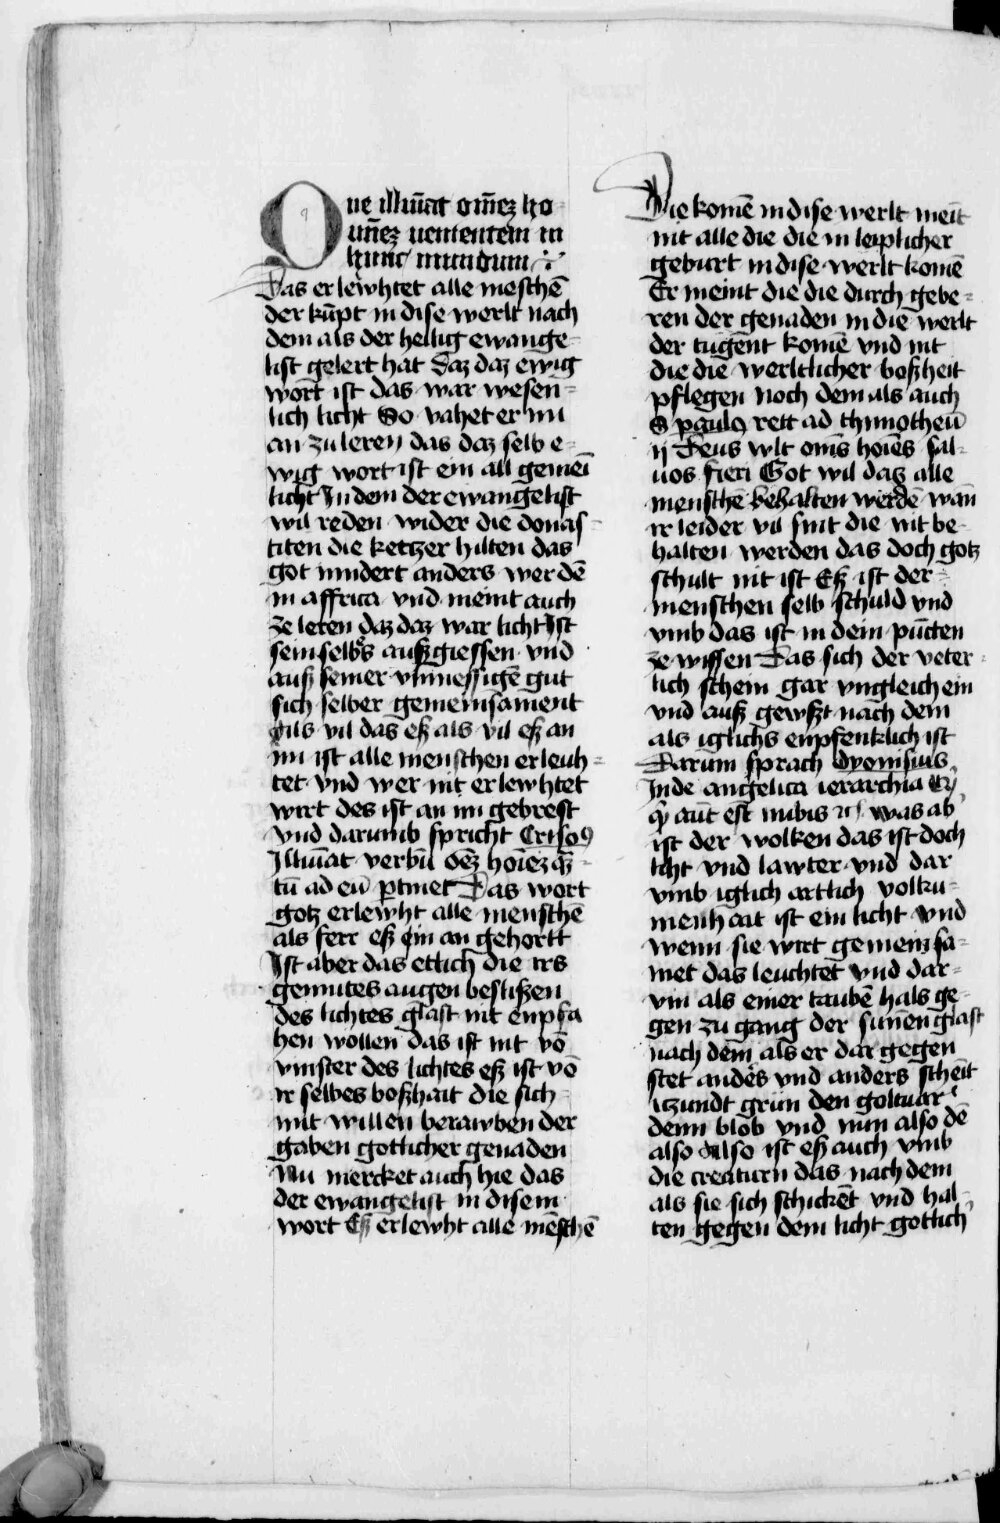 Que illuīat om̄ez ho
mīez uenientem in
hunc mundum
Das erlewhtet alle meschē
der kūpt in dise werlt nach
dem als der heilig ewange-
list gelert hat daz daz ewig
wort ist das war wesen-
lich licht So vahet er nu
an zu leren das daz selb e-
wig wort ist ein all gemeī
licht In dem der ewangelist
wil reden wider die donas-
titen die ketzer hilten das
got nindert anders werdē
in affrica vnd meint auch
ze leren daz daz war licht Ist
sein selbs auszgiessen vnd
ausz seiner vnmessigē gut
sich selber gemeinsament
Als vil das esz als vil esz an
im ist alle menschen erleuh-
tet vnd wer nit erlewhtet
wirt des ist an im gebrest
Vnd darumb spricht Crisoꝯ
Illuīat verbū oēz hoīez qͣ-
tū ad eū ptinet Das wort
gotz erlewht alle menschē
als ferr esz ein an gehortt
Ist aber das etlich die irs
gemutes augen beslißen
des lichtes glast nit enpfa
hen wollen das ist nit vō
vinster des lichtes esz ist vō
ir selbes boßhait die sich
mit willen berawben der
gaben gotlicher genaden
Nu mercket auch hie das
der ewangelist in disem
wort Esz erlewht alle mēschē
Die komē in dise werlt meīt
nit alle die die in leiplicher
geburt in dise werlt komē
Er meint die die durch gebe-
ren der genaden in die werlt
der tugent komē vnd nit
die die werltlicher boßheit
pflegen Noch dem als auch
S paulꝯ rett ad thimotheū
ij Deus wlt om̄s hoīes sal-
uos fieri Got wil daz alle
menschē behalten werdē wan̄
ir leider vil sint die nit be-
halten werden das doch gotz
schult nit ist Esz ist der
menschen selb schuld vnd
vmb das ist in dein pūcten
ze wissen Das sich der veter-
lich schein gar vngleich ein
vnd ausz gewszt nach dem
als iglichs enpfenklich ist
Darum sprach dyonisius
Inde angelica ierarchia
aūt est nubis was ab
ist der wolken das ist doch
licht vnd lawter vnd dar
vmb iglich artlich volku-
menhait ist ein licht vnd
wenn sie wirt gemeinsa-
met das leuchtet vnd dar-
vm als einer taubē hals ge-
gen zu gang der sunēn glast
nach dem als er dar gegen
stet anders vnd anders scheīt
itzundt grün den goltuar
denn blob vnd nun also dē
also Also ist esz auch vmb
die creaturn das nach dem
als sie sich schickēt vnd hal
ten gegen dem licht gotlich